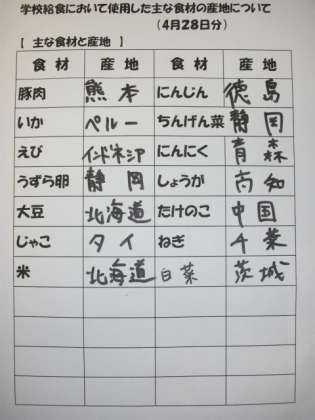 学校給食において使用した主な食材の産地について
（4月28日分）
【 主な食材と産地 】
食材 産地 食材 産地
豚肉 熊本 にんじん 徳島
いか ペルー ちんげん菜 静岡
えび インドネシア にんにく 青森
うずら卵 静岡 しょうが 高知
大豆 北海道 たけのこ 中国
じゃこ タイ ねぎ 千葉
米 北海道 白菜 茨城